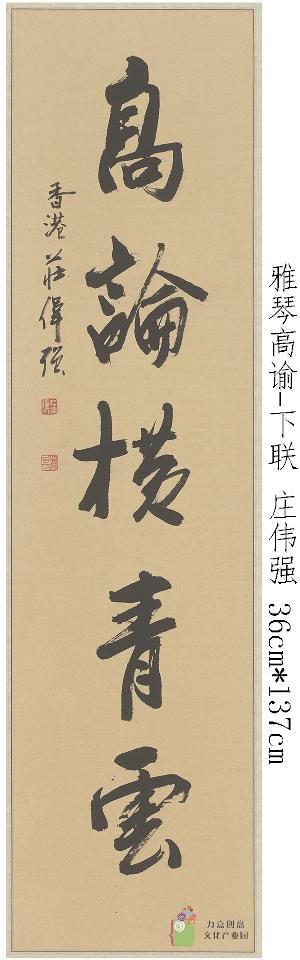 高論橫青雲
香港莊偉强
雅琴高谕-下联 庄伟强 36cm*137cm
力嘉创意
文化产业园